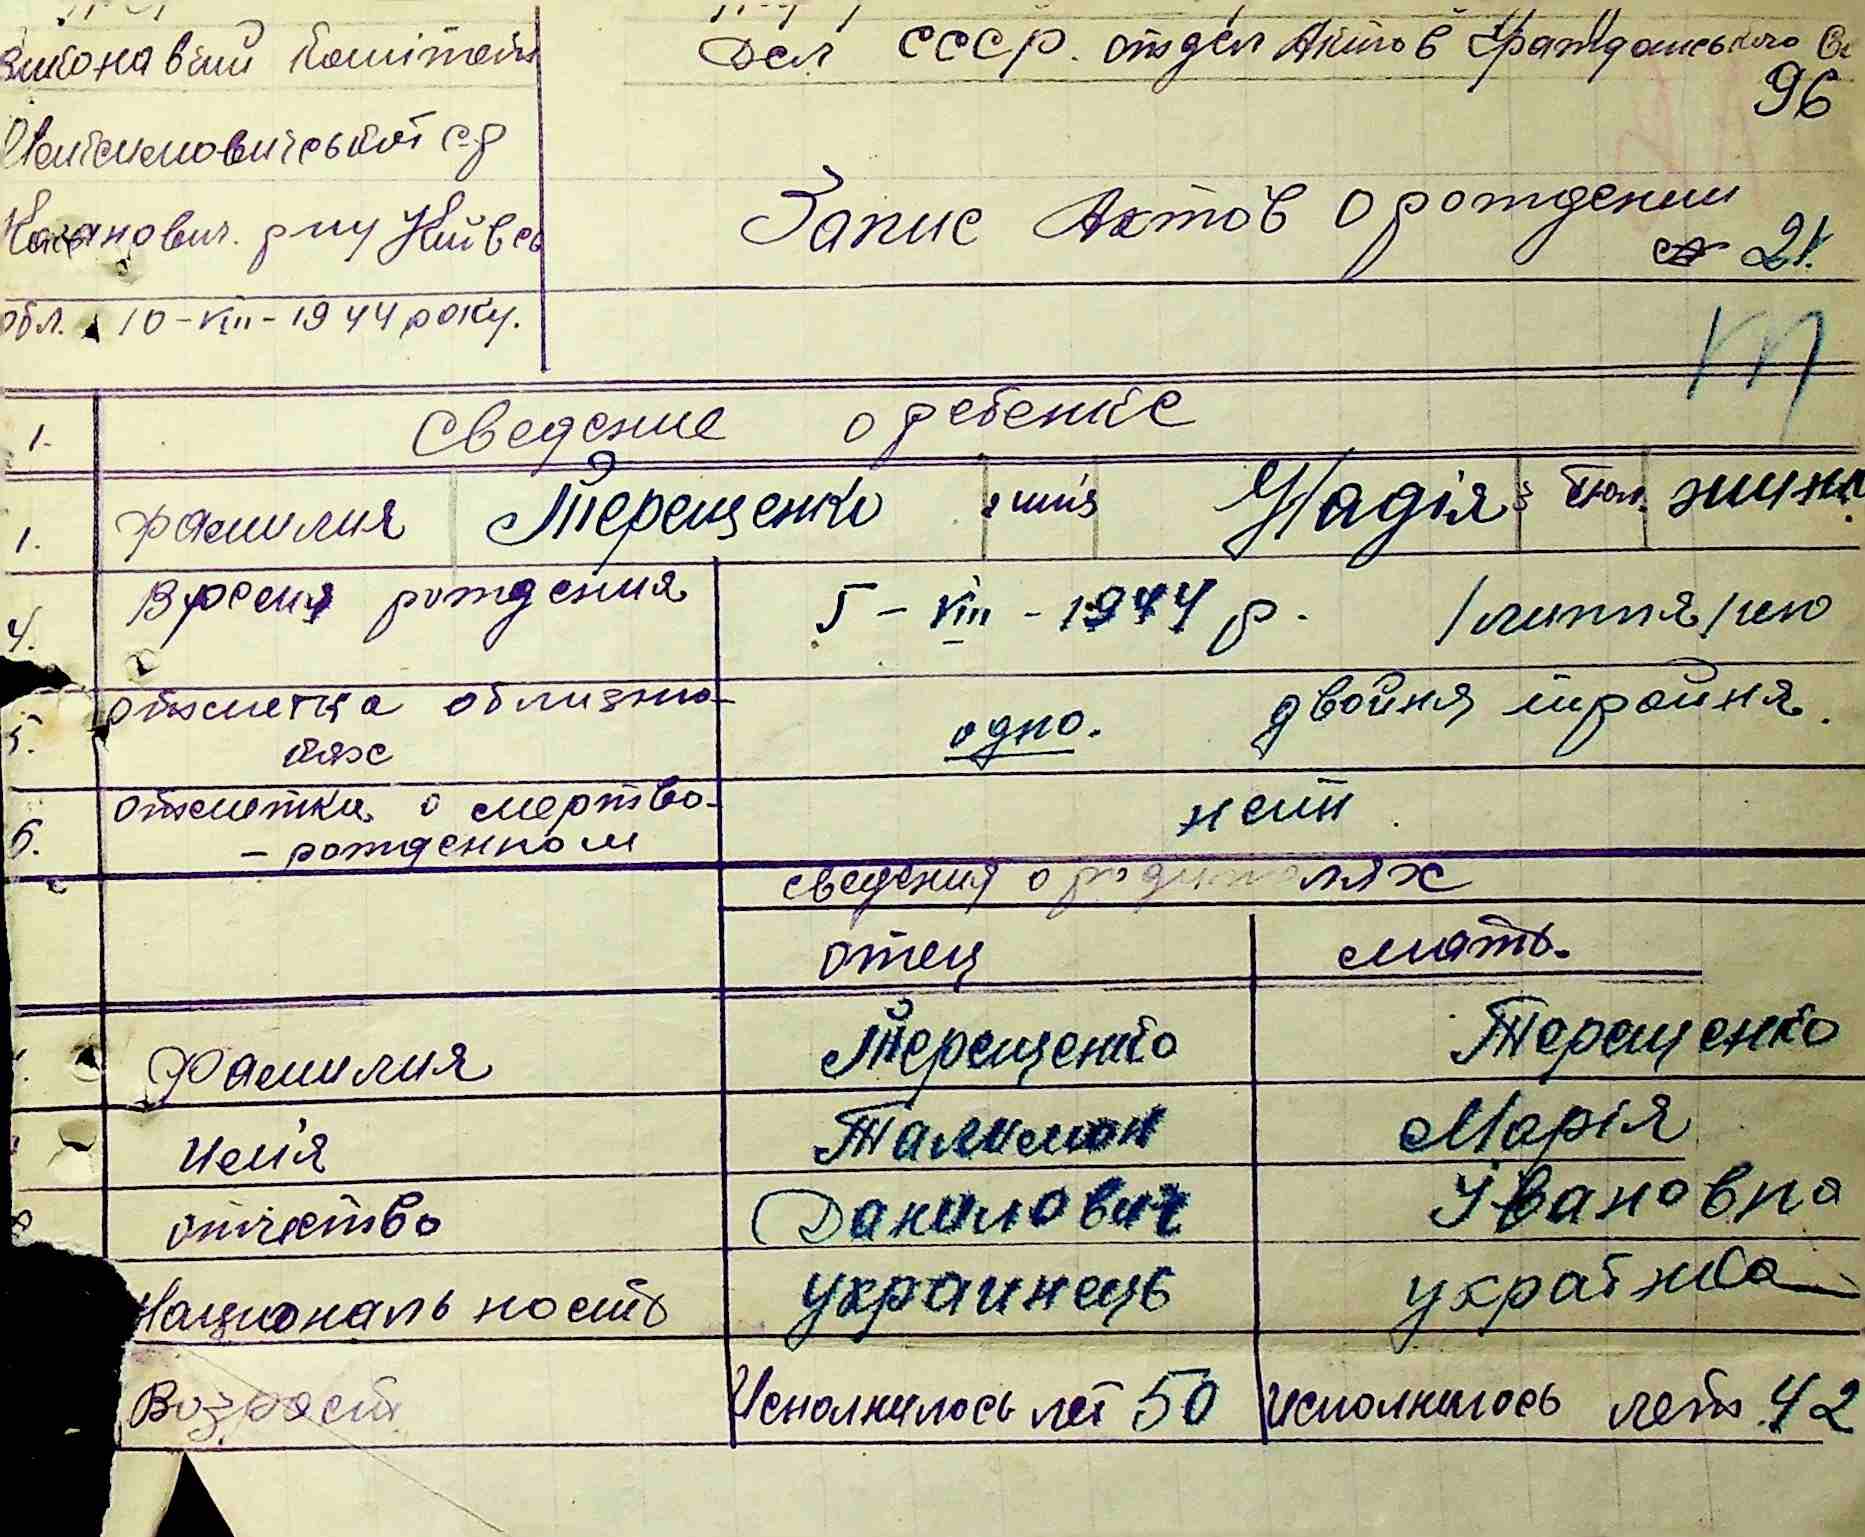 виконавчий комітет
Дел СССР. отдел Актов Гражданського
96
с-р
Каганович. р-ну Київсь
обл. 10-VIII-1944 року.
Запис Актов о рождении
№ 21.
1. Сведение о ребенке
1. фамилия Терещенко имія Надія пол. жинк.
4. Время рождения 5-VIII-1944 р. /липня/ню
5. отметка облизня-
тях
одно. двойня тройня.
6. отметка о мертво-
-рожденном
нет.
сведения о родителях
отец мать.
фамилия Терещенко Терещенко
имія Талимон Марія
отчество Данилович Івановна
Национальность украинець українка
Возраст Исполнилось лет 50 исполнилось лет 42